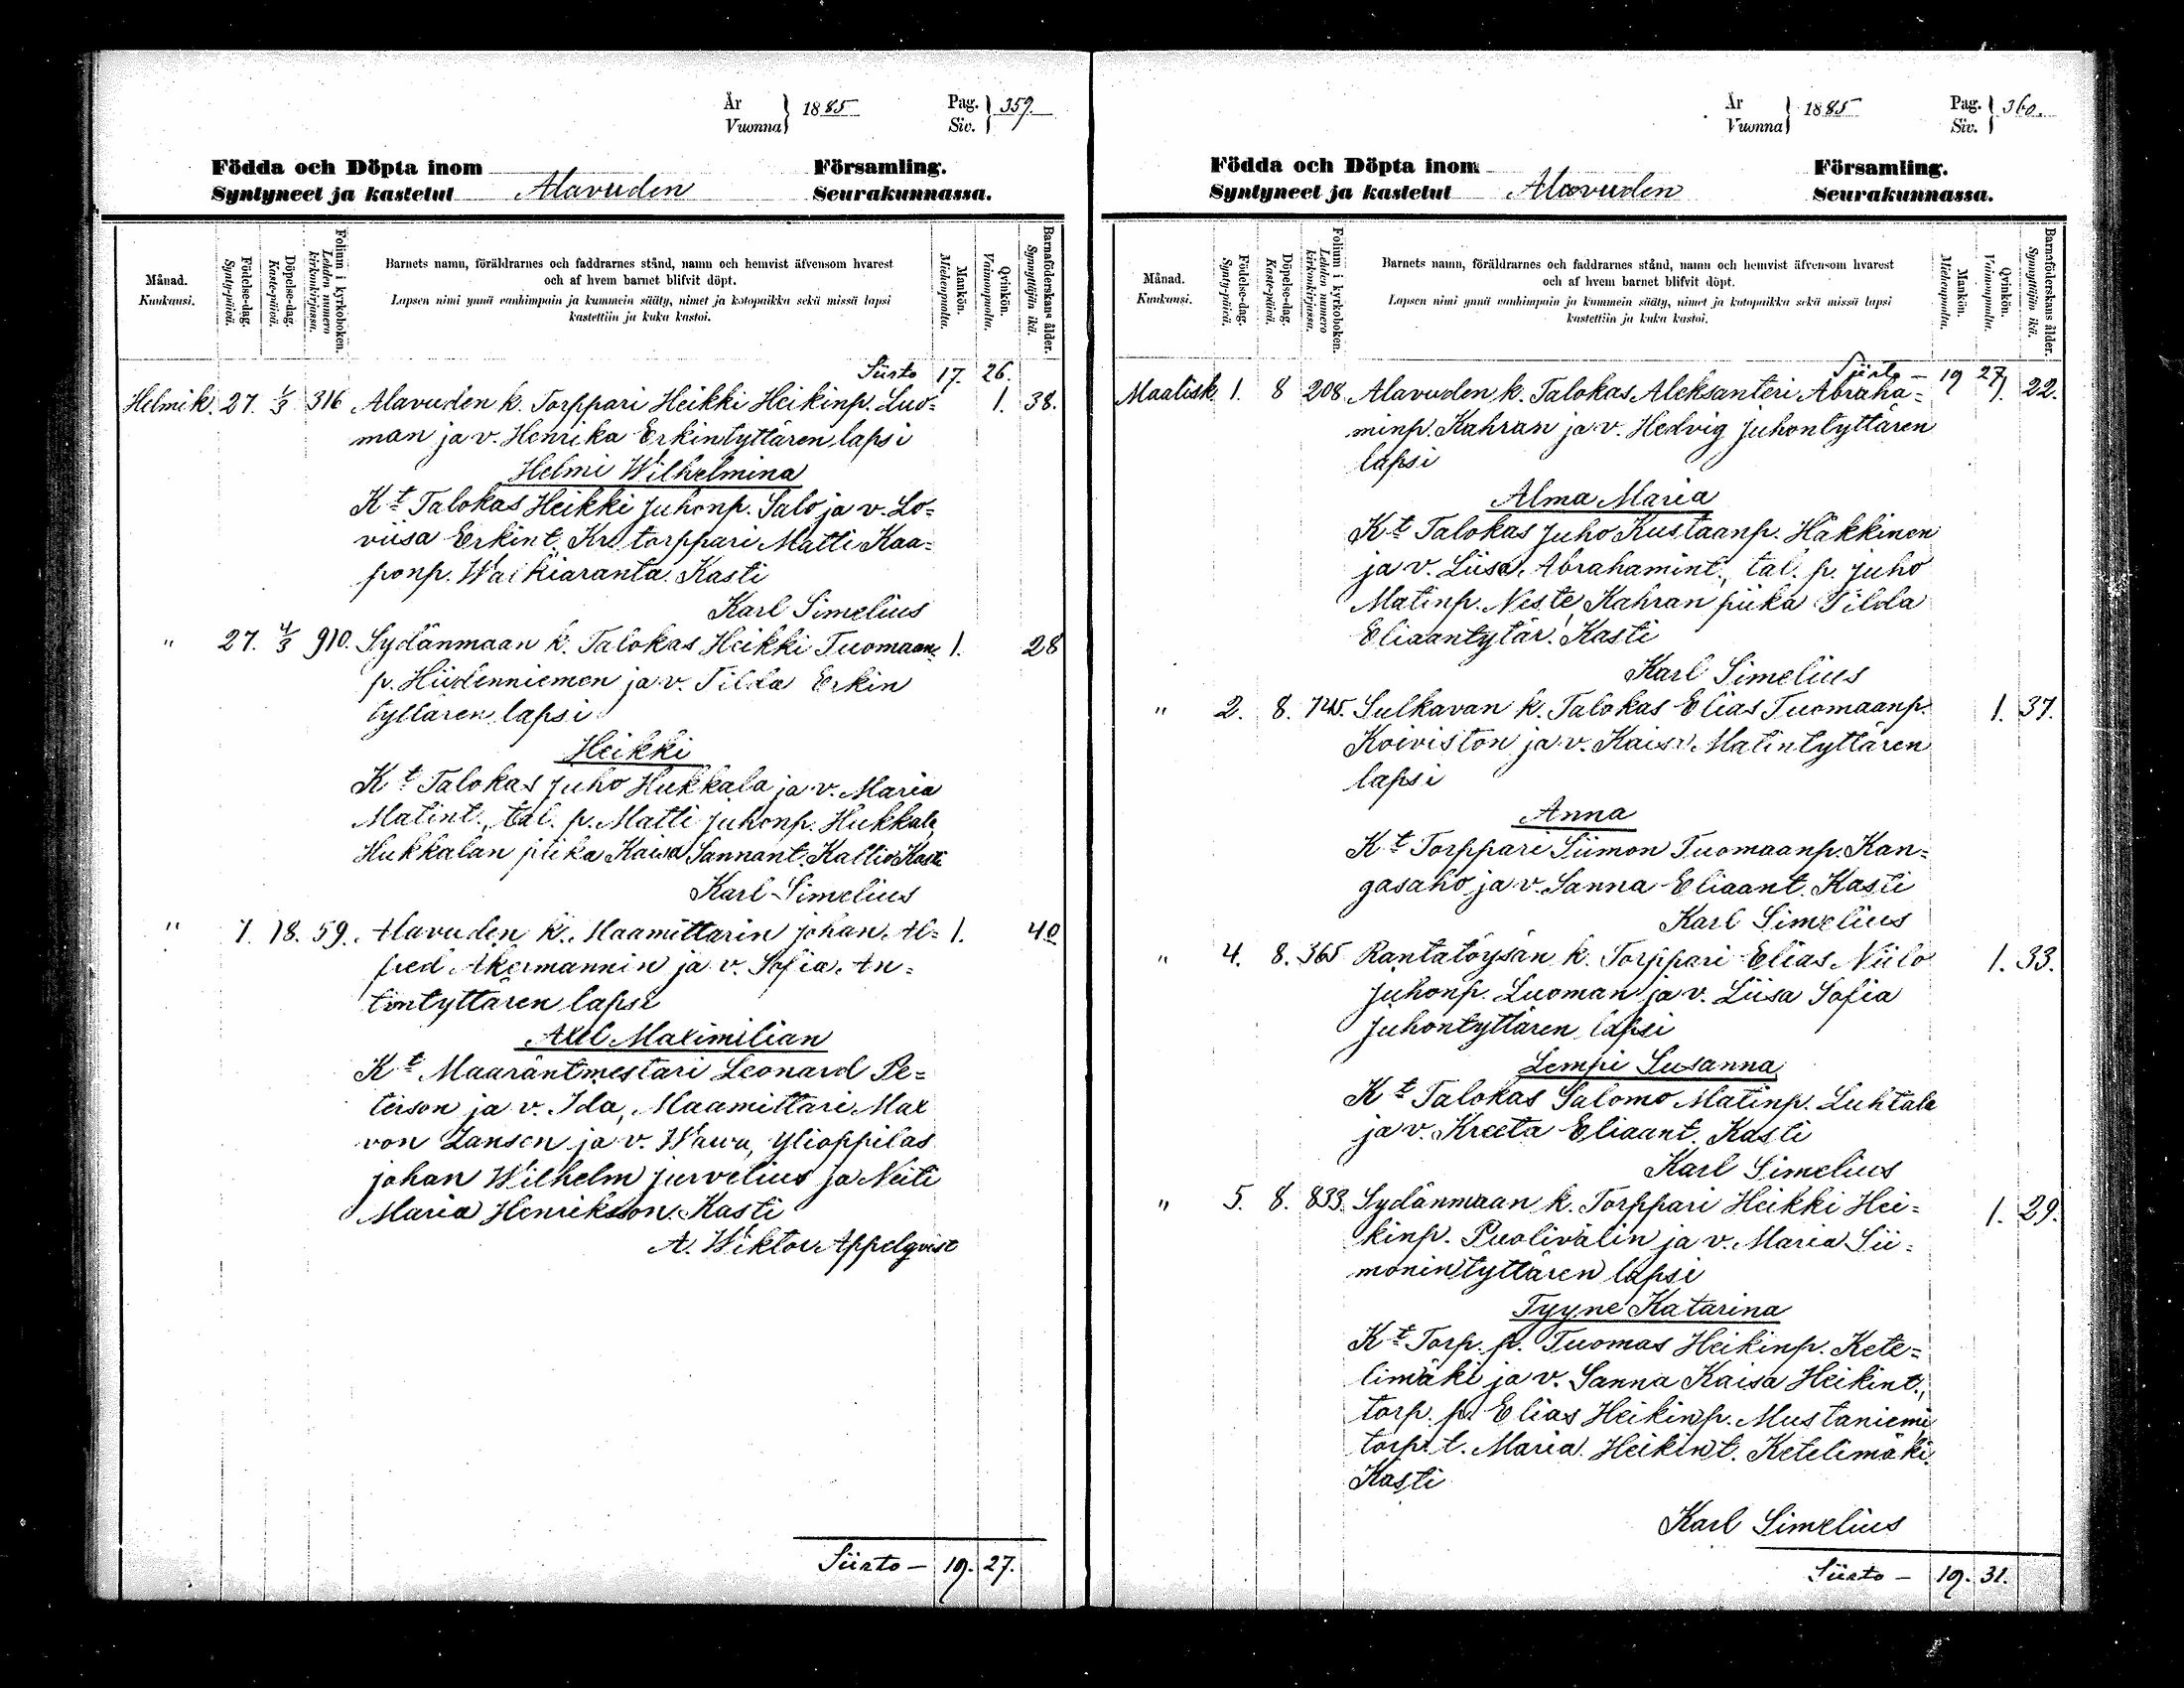 År
Vuonna } 1885 Pag.
Siv. } 359.
Födda och Döpta inom Församling.
Syntyneet ja kastetut Alavuden Seurakunnassa.
Månad.
Kuukausi.
Födelse-dag.
Synty-päivä.
Döpelse-dag.
Kaste-päivä.
Folium i kyrkoboken.
Lehden numero kirkonkirjassa.
Barnets namn, föräldrarnes och faddrarnes stånd, namn och hemvist äfvensom hvarest
och af hvem barnet blifvit döpt.
Lapsen nimi ynnä vanhimpain ja kummein sääty, nimet ja kotopaikka sekä missä lapsi
kastettiin ja kuka kastoi.
Mankön.
Miehenpuolta.
Qvinkön.
Vaimonpuolta.
Barnaföderskans ålder.
Synnyttäjän ikä.
Siirto 17. 26.
Helmik. 27. 1/3 316 Alavuden k. Torppari Heikki Heikinp. Luo= 1. 38.
man ja v. Henrika Erkintyttären lapsi
Helmi Wilhelmina
Kt Talokas Heikki Juhonp. Salo ja v. Lo=
viisa Erkint. Kr. torppari Matti Kaa=
ponp. Walkiaranta. Kasti
Karl Simelius
" 27. 4/3 910. Sydänmaan k. Talokas Heikki Tuomaan= 1. 28
p. Hiidenniemen ja v. Tilda Erkin
tyttären lapsi
Heikki
Kt Talokas Juho Hukkala ja v. Maria
Matint., tal. p. Matti Juhonp. Hukkala
Hukkalan piika Kaisa Sannant. Kallio Kasti
Karl Simelius
" 7. 18. 59. Alavuden k. Maamittarin Johan Al= 1. 40
fred Åkermannin ja v. Sofia An=
tintyttären lapsi
Axel Maximilian
Kt Maaräntmestari Leonard Pe=
terson ja v. Ida, Maamittari Max
von Zansen ja v. Ylioppilas
Johan Wilhelm Jurvelius ja Neiti
Maria Henriksson. Kasti
A. Wiktor Appelqvist
Siirto — 19. 27.
År
Vuonna } 1885 Pag.
Siv. } 360.
Födda och Döpta inom Församling.
Syntyneet ja kastetut Alavuden Seurakunnassa.
Månad.
Kuukausi.
Födelse-dag.
Synty-päivä.
Döpelse-dag.
Kaste-päivä.
Folium i kyrkoboken.
Lehden numero kirkonkirjassa.
Barnets namn, föräldrarnes och faddrarnes stånd, namn och hemvist äfvensom hvarest
och af hvem barnet blifvit döpt.
Lapsen nimi ynnä vanhimpain ja kummein sääty, nimet ja kotopaikka sekä missä lapsi
kastettiin ja kuka kastoi.
Mankön.
Miehenpuolta.
Qvinkön.
Vaimonpuolta.
Barnaföderskans ålder.
Synnyttäjän ikä.
Siirto — 19 27
Maalisk. 1. 8 208. Alavuden k. Talokas Aleksanteri Abraha= 1. 22.
minp. Kahran ja v. Hedvig Juhontyttären
lapsi
Alma Maria
Kt Talokas Juho Kustaanp. Häkkinen
ja v. Liisa Abrahamint., tal. p. Juho
Matinp. Neste, Kahran piika Tilda
Eliaantytär. Kasti
Karl Simelius
" 2. 8. 745. Sulkavan k. Talokas Elias Tuomaanp. 1. 37.
Koiviston ja v. Kaisa Matintyttären
lapsi
Anna
Kt Torppari Siimon Tuomaanp. Kan=
gasaho ja v. Sanna Eliaant. Kasti
Karl Simelius
" 4. 8. 365 Rantatöysän k. Torppari Elias Niilo 1. 33.
Juhonp. Luoman ja v. Liisa Sofia
Juhontyttären lapsi
Lempi Susanna
Kt Talokas Salomo Matinp. Luhtala
ja v. Kreeta Eliaant. Kasti
Karl Simelius
" 5. 8. 833. Sydänmaan k. Torppari Heikki Hei= 1. 29.
kinp. Puolivälin ja v. Maria Sii=
monintyttären lapsi
Tyyne Katarina
Kt Torp. p. Tuomas Heikinp. Kete=
limäki ja v. Sanna Kaisa Heikint.,
torp. p. Elias Heikinp. Mustaniemi
torp. t. Maria Heikint. Ketelimäki.
Kasti
Karl Simelius
Siirto — 19. 31.